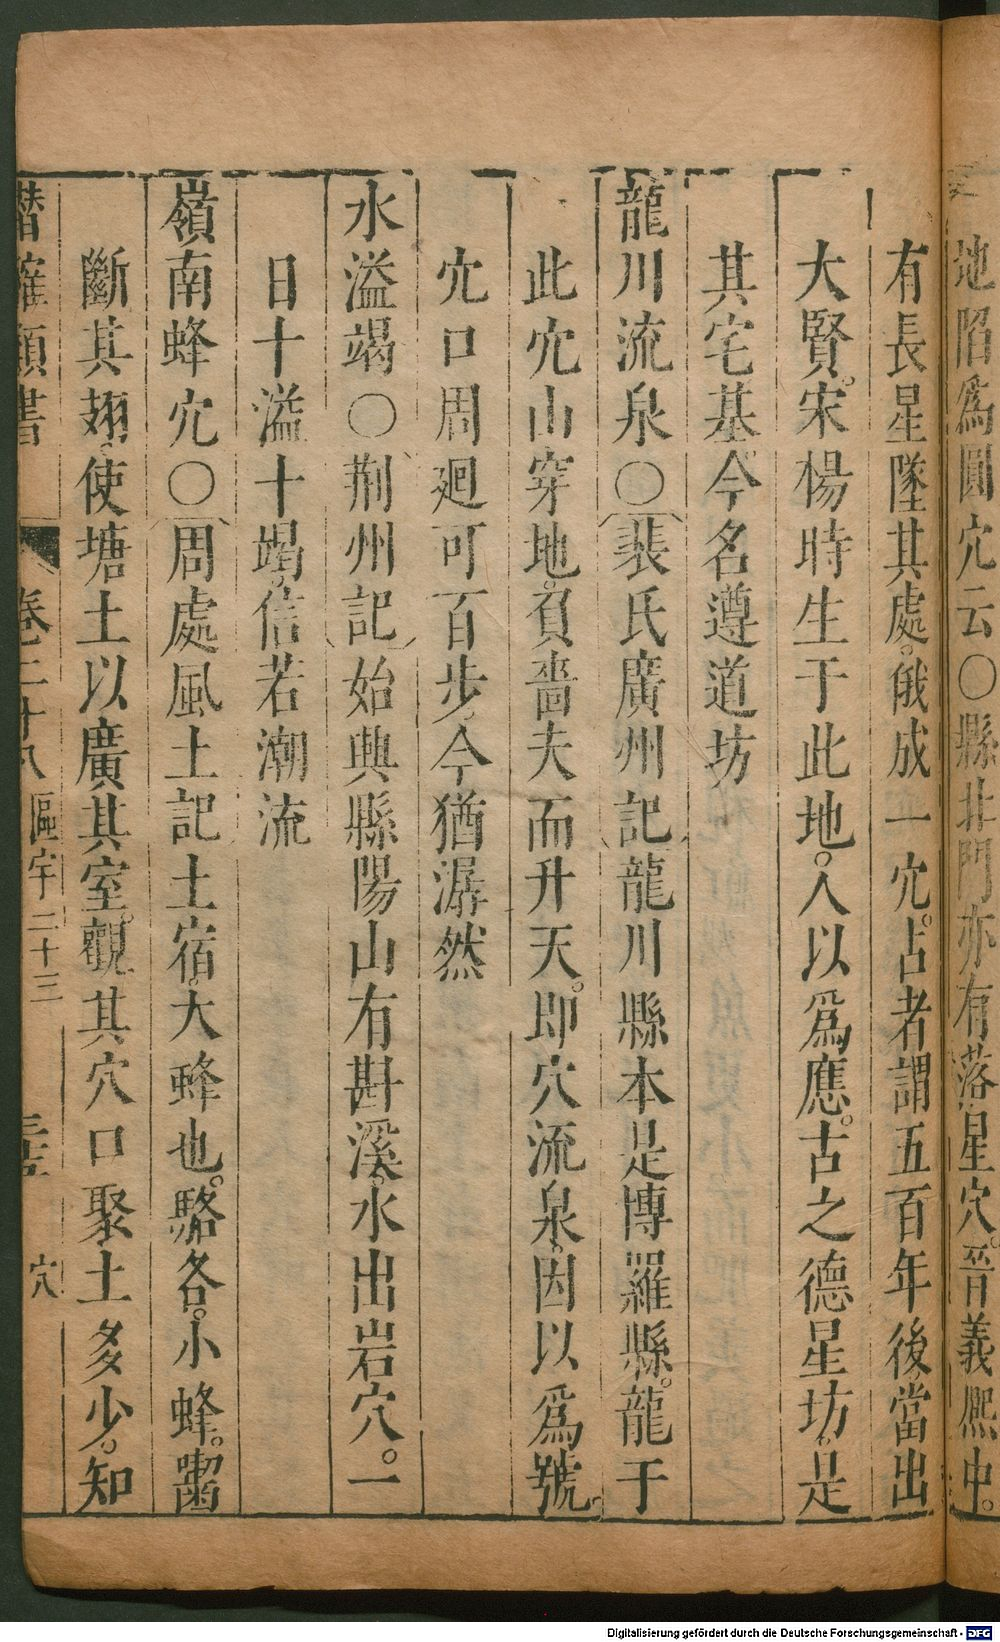 地陷爲圓穴云○縣北門亦有落星穴。晉義熙中。
有長星墜其處。俄成一穴。占者謂五百年後當出
大賢。宋楊時生于此地。人以爲應。古之德星坊。是
其宅基。今名遵道坊
龍川流泉○裴氏廣州記龍川縣本是博羅縣。龍于
此穴山穿地。負嗇夫而升天。即穴流泉。因以爲號。
穴口周廻可百步。今猶潺然
水溢竭○荆州記始興縣陽山有斟溪。水出岩穴。一
日十溢十竭。信若潮流
嶺南蜂穴○周處風土記土宿。大蜂也。駱各。小蜂。齧
斷其翅。使塘土以廣其室。觀其穴口聚土多少。知
潛確類書 卷二十八 區宇二十三 穴
Digitalisierung gefördert durch die Deutsche Forschungsgemeinschaft - DFG